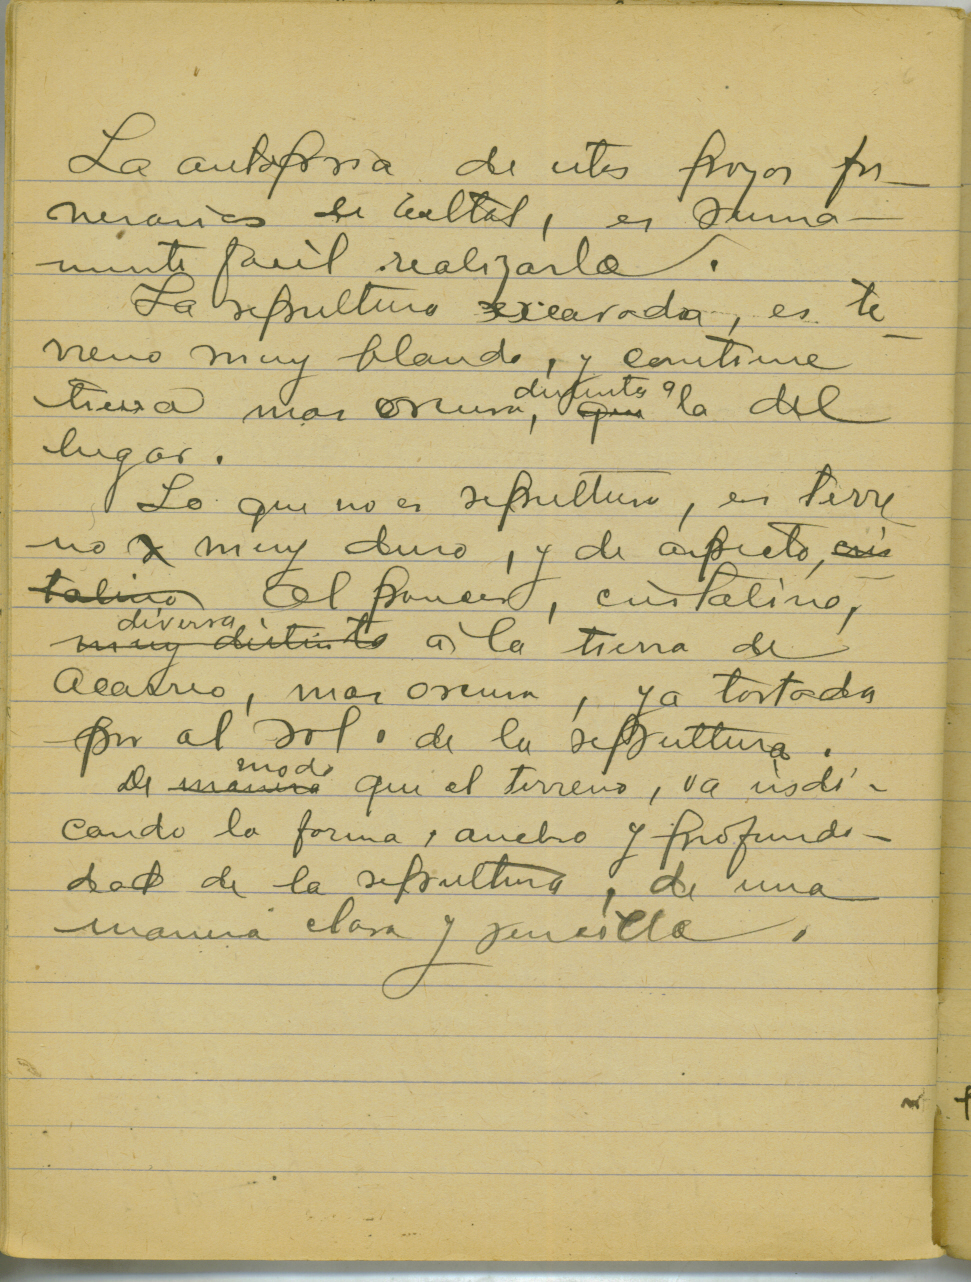 La autopsia de estos pozos fu-
nerarios de Taltal, es suma-
mente facil realizarla.
La sepultura excavada, es te-
rreno muy blando, y contiene
tierra mas oscura, distinta a
que la del
lugar.
Lo que no es sepultura, es terre-
no muy duro, y de aspecto, cris-
talino el pancer, cristalino,
diversa
muy distinta a la tierra de
acarreo, mas oscura, ya tostada
por al sol. de la sepulttura.
modo
De manera que el terreno, va indi-
cando la forma, ancho y profundi-
dad de la sepulttura, de una
manera clara y sencilla.